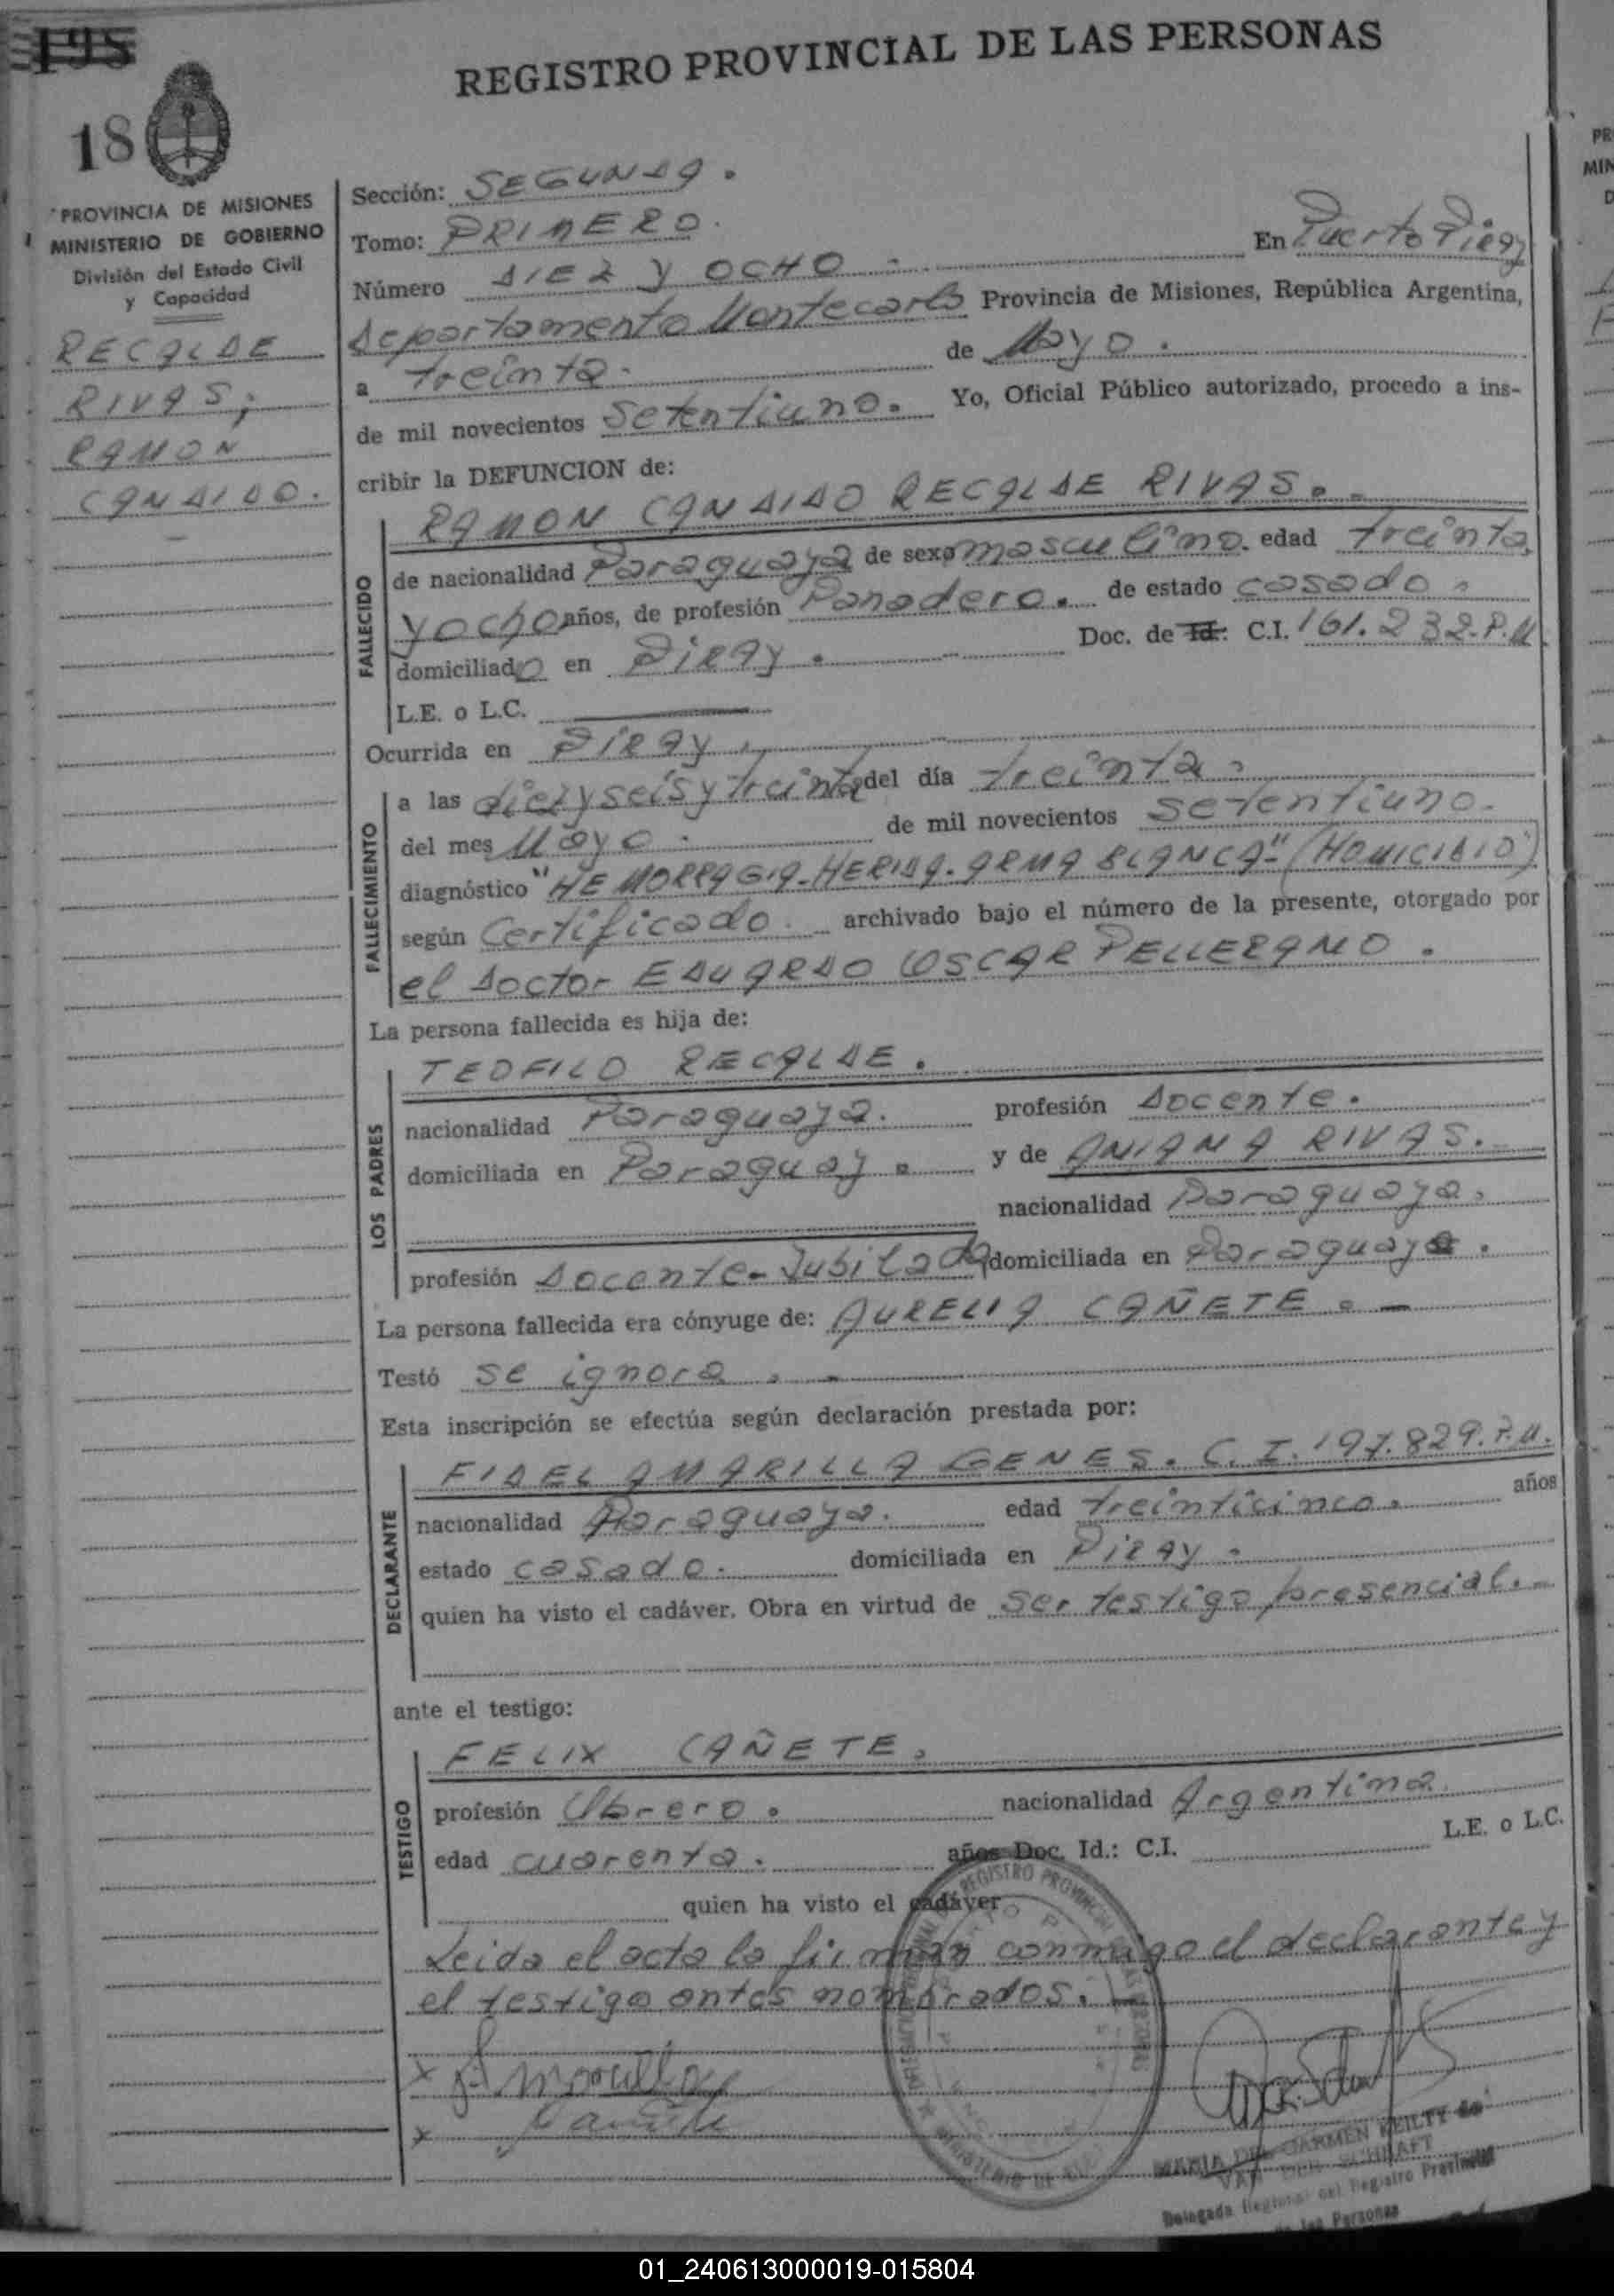 195
18
REGISTRO PROVINCIAL DE LAS PERSONAS
PROVINCIA DE MISIONES
MINISTERIO DE GOBIERNO
División del Estado Civil
y Capacidad
RECALDE
RIVAS;
RAMON
CANDIDO.
Sección: SEGUNDA.
Tomo: PRIMERO.
Número DIEZ Y OCHO. En Puerto Piray
Departamento Montecarlo Provincia de Misiones, República Argentina,
a treinta. de Mayo.
de mil novecientos setentiuno. Yo, Oficial Público autorizado, procedo a ins-
cribir la DEFUNCION de:
RAMON CANDIDO RECALDE RIVAS.
FALLECIDO
de nacionalidad Paraguaya de sexo masculino. edad treinta
y ocho años, de profesión Panadero. de estado casado.
domiciliado en PIRAY. Doc. de Id.: C.I. 161.232-P.M.
L.E. o L.C.
Ocurrida en PIRAY.
FALLECIMIENTO
a las diez y seis y treinta del día treinta.
del mes Mayo. de mil novecientos setentiuno.
diagnóstico "HEMORRAGIA-HERIDA-ARMA BLANCA-" (HOMICIDIO)
según Certificado. archivado bajo el número de la presente, otorgado por
el Doctor EDUARDO OSCAR PELLERANO.
La persona fallecida es hija de:
LOS PADRES
TEOFILO RECALDE.
nacionalidad Paraguaya. profesión Docente.
domiciliada en Paraguay. y de ANIANA RIVAS.
nacionalidad Paraguaya.
profesión Docente-Jubilada domiciliada en Paraguay.
La persona fallecida era cónyuge de: AURELIA CAÑETE. -
Testó se ignora. -
Esta inscripción se efectúa según declaración prestada por:
DECLARANTE
FIDEL AMARILLA GENES. C.I. 197.829.P.M.
nacionalidad Paraguaya. edad treinticinco. años
estado casado. domiciliada en PIRAY.
quien ha visto el cadáver. Obra en virtud de ser testigo presencial.-
ante el testigo:
TESTIGO
FELIX CAÑETE.
profesión Obrero. nacionalidad Argentina.
edad cuarenta. años Doc. Id.: C.I. L.E. o L.C.
quien ha visto el cadáver
Leida el acta la firman conmigo el declarante y
el testigo antes nombrados. -
x F Amarilla
x
REGISTRO PROVINCIAL
MINISTERIO DE
MARIA DEL CARMEN KEILTY de
VAN DER SCHRAFT
Delegada Regional del Registro Provincial
de las Personas
01_240613000019-015804